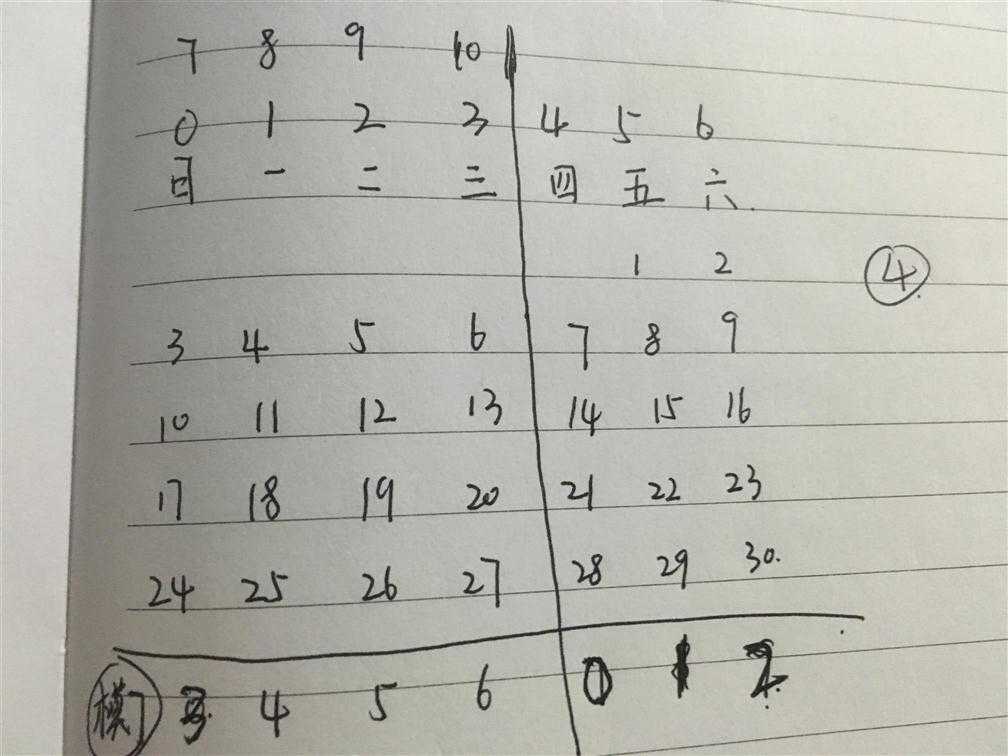 7 8 9 10
0 1 2 3 4 5 6
日 一 二 三 四 五 六
1 2 ④
3 4 5 6 7 8 9
10 11 12 13 14 15 16
17 18 19 20 21 22 23
24 25 26 27 28 29 30
模7 3 4 5 6 0 1 2